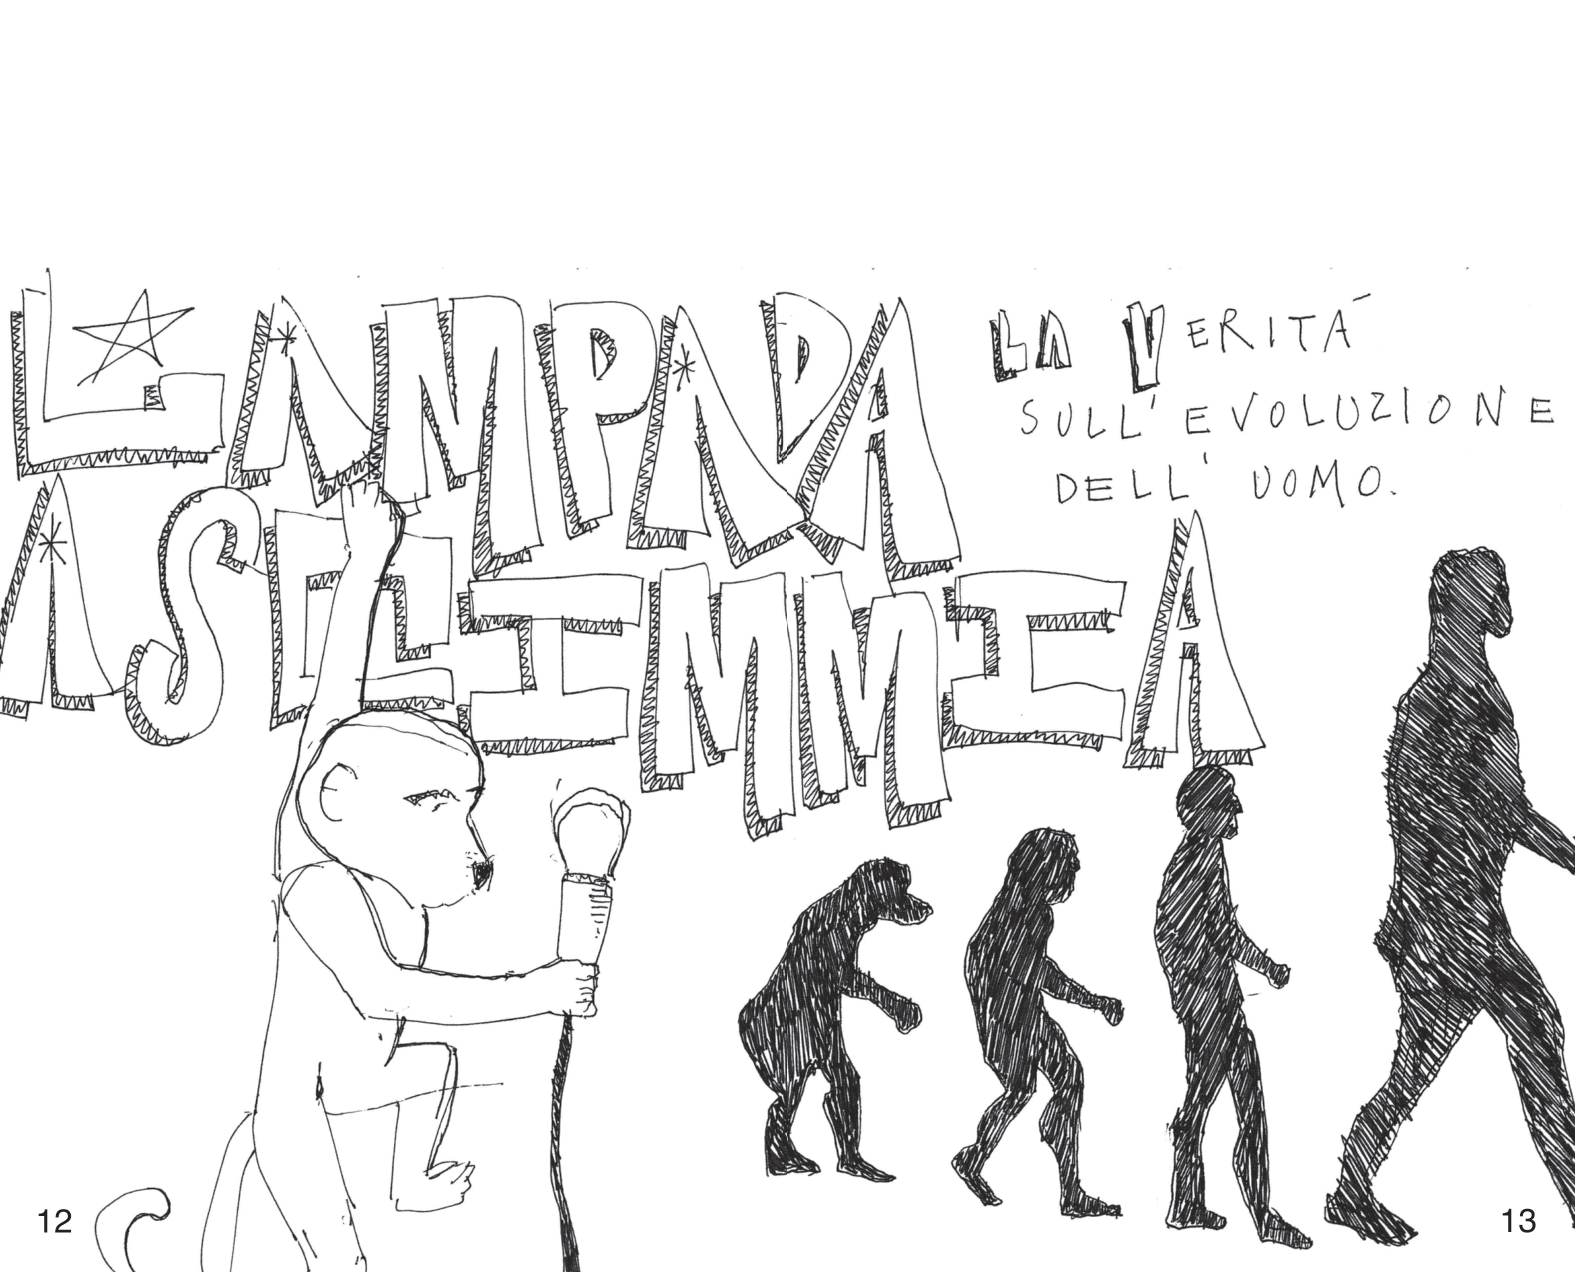 LAMPADA
A SCIMMIA
LA VERITÁ
SULL' EVOLUZIONE
DELL' UOMO.
12
13